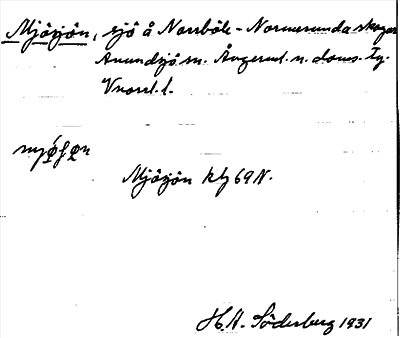 Mjösjön, sjö å Norrböle-Normesunda skogar
Anundsjö sn. Ångerml. n. doms. Tg.
Vnorrl. l.
Mjösjön kbl 69 N.
H. A. Söderberg 1931